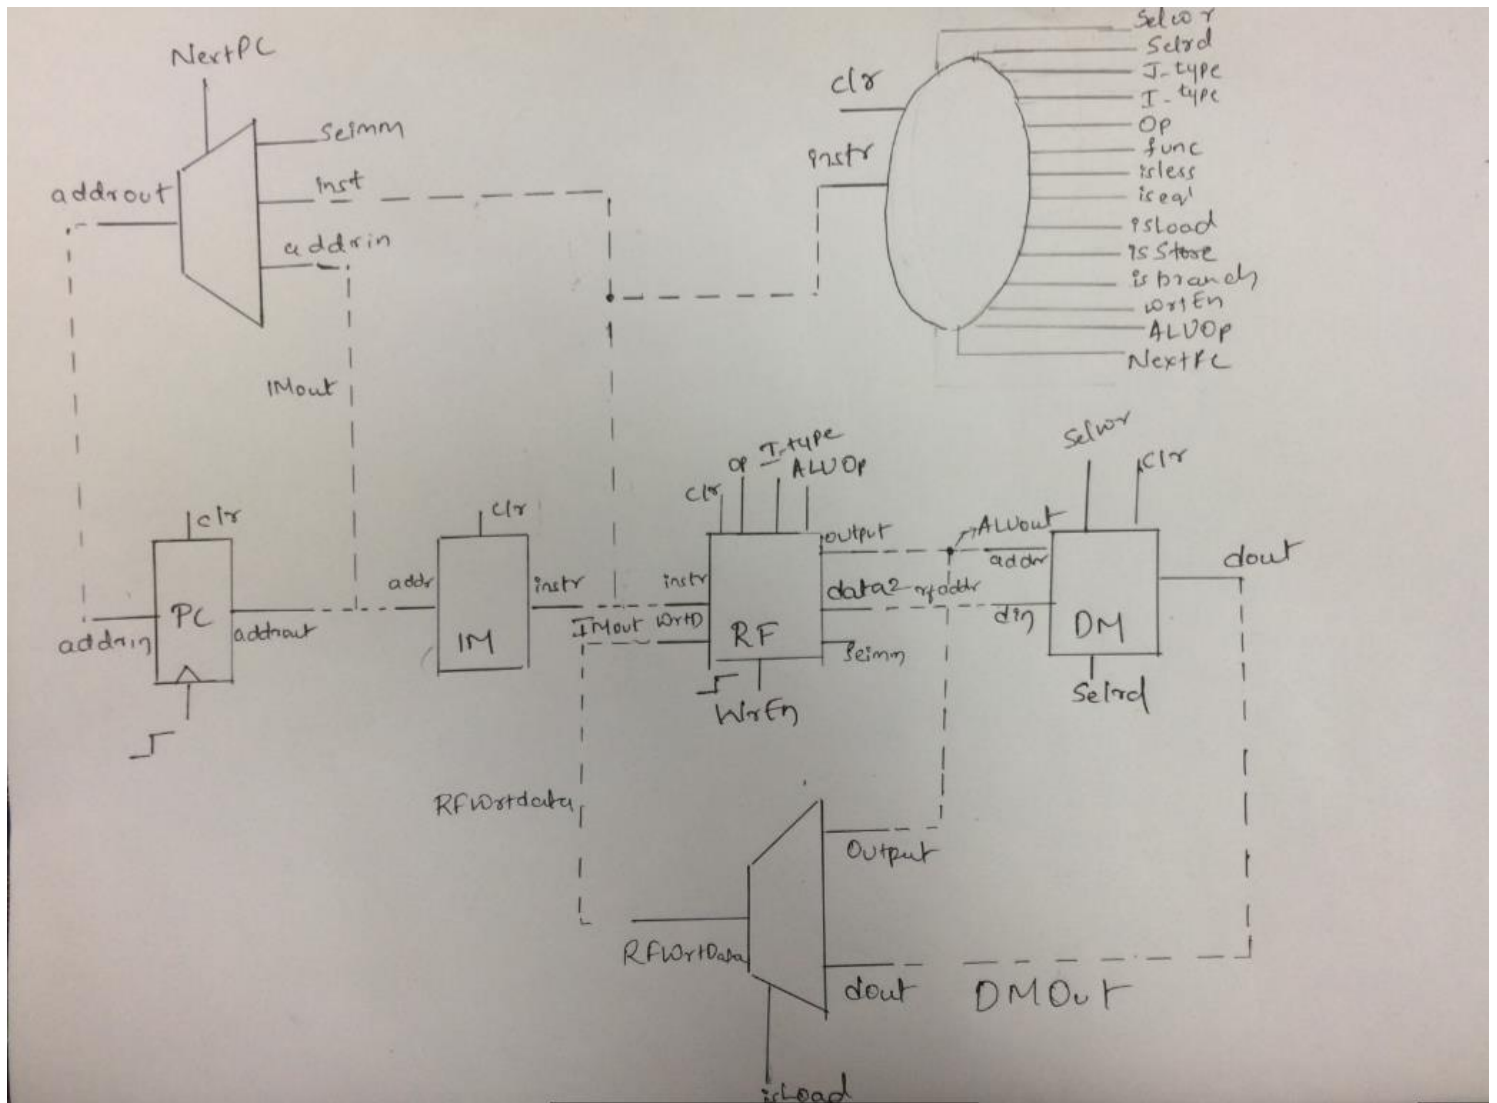 NextPC
Seimm
addrout
inst
addrin
IMout
clr
instr
Selwr
Selrd
J-type
I-type
Op
func
isless
iseq'
isLoad
isStore
isbranch
WrtEn
ALUOp
NextPC
clr
addrin
PC
addrout
clr
addr
IM
instr
IMout
clr
Op
I-type
ALUOp
instr
WrtD
RF
output
data2
Seimm
WrEn
ALUout
addr
rfaddr
din
Selwr
clr
DM
Selrd
dout
RFWrtdata
RFWrtData
Output
dout
DMOut
isLoad